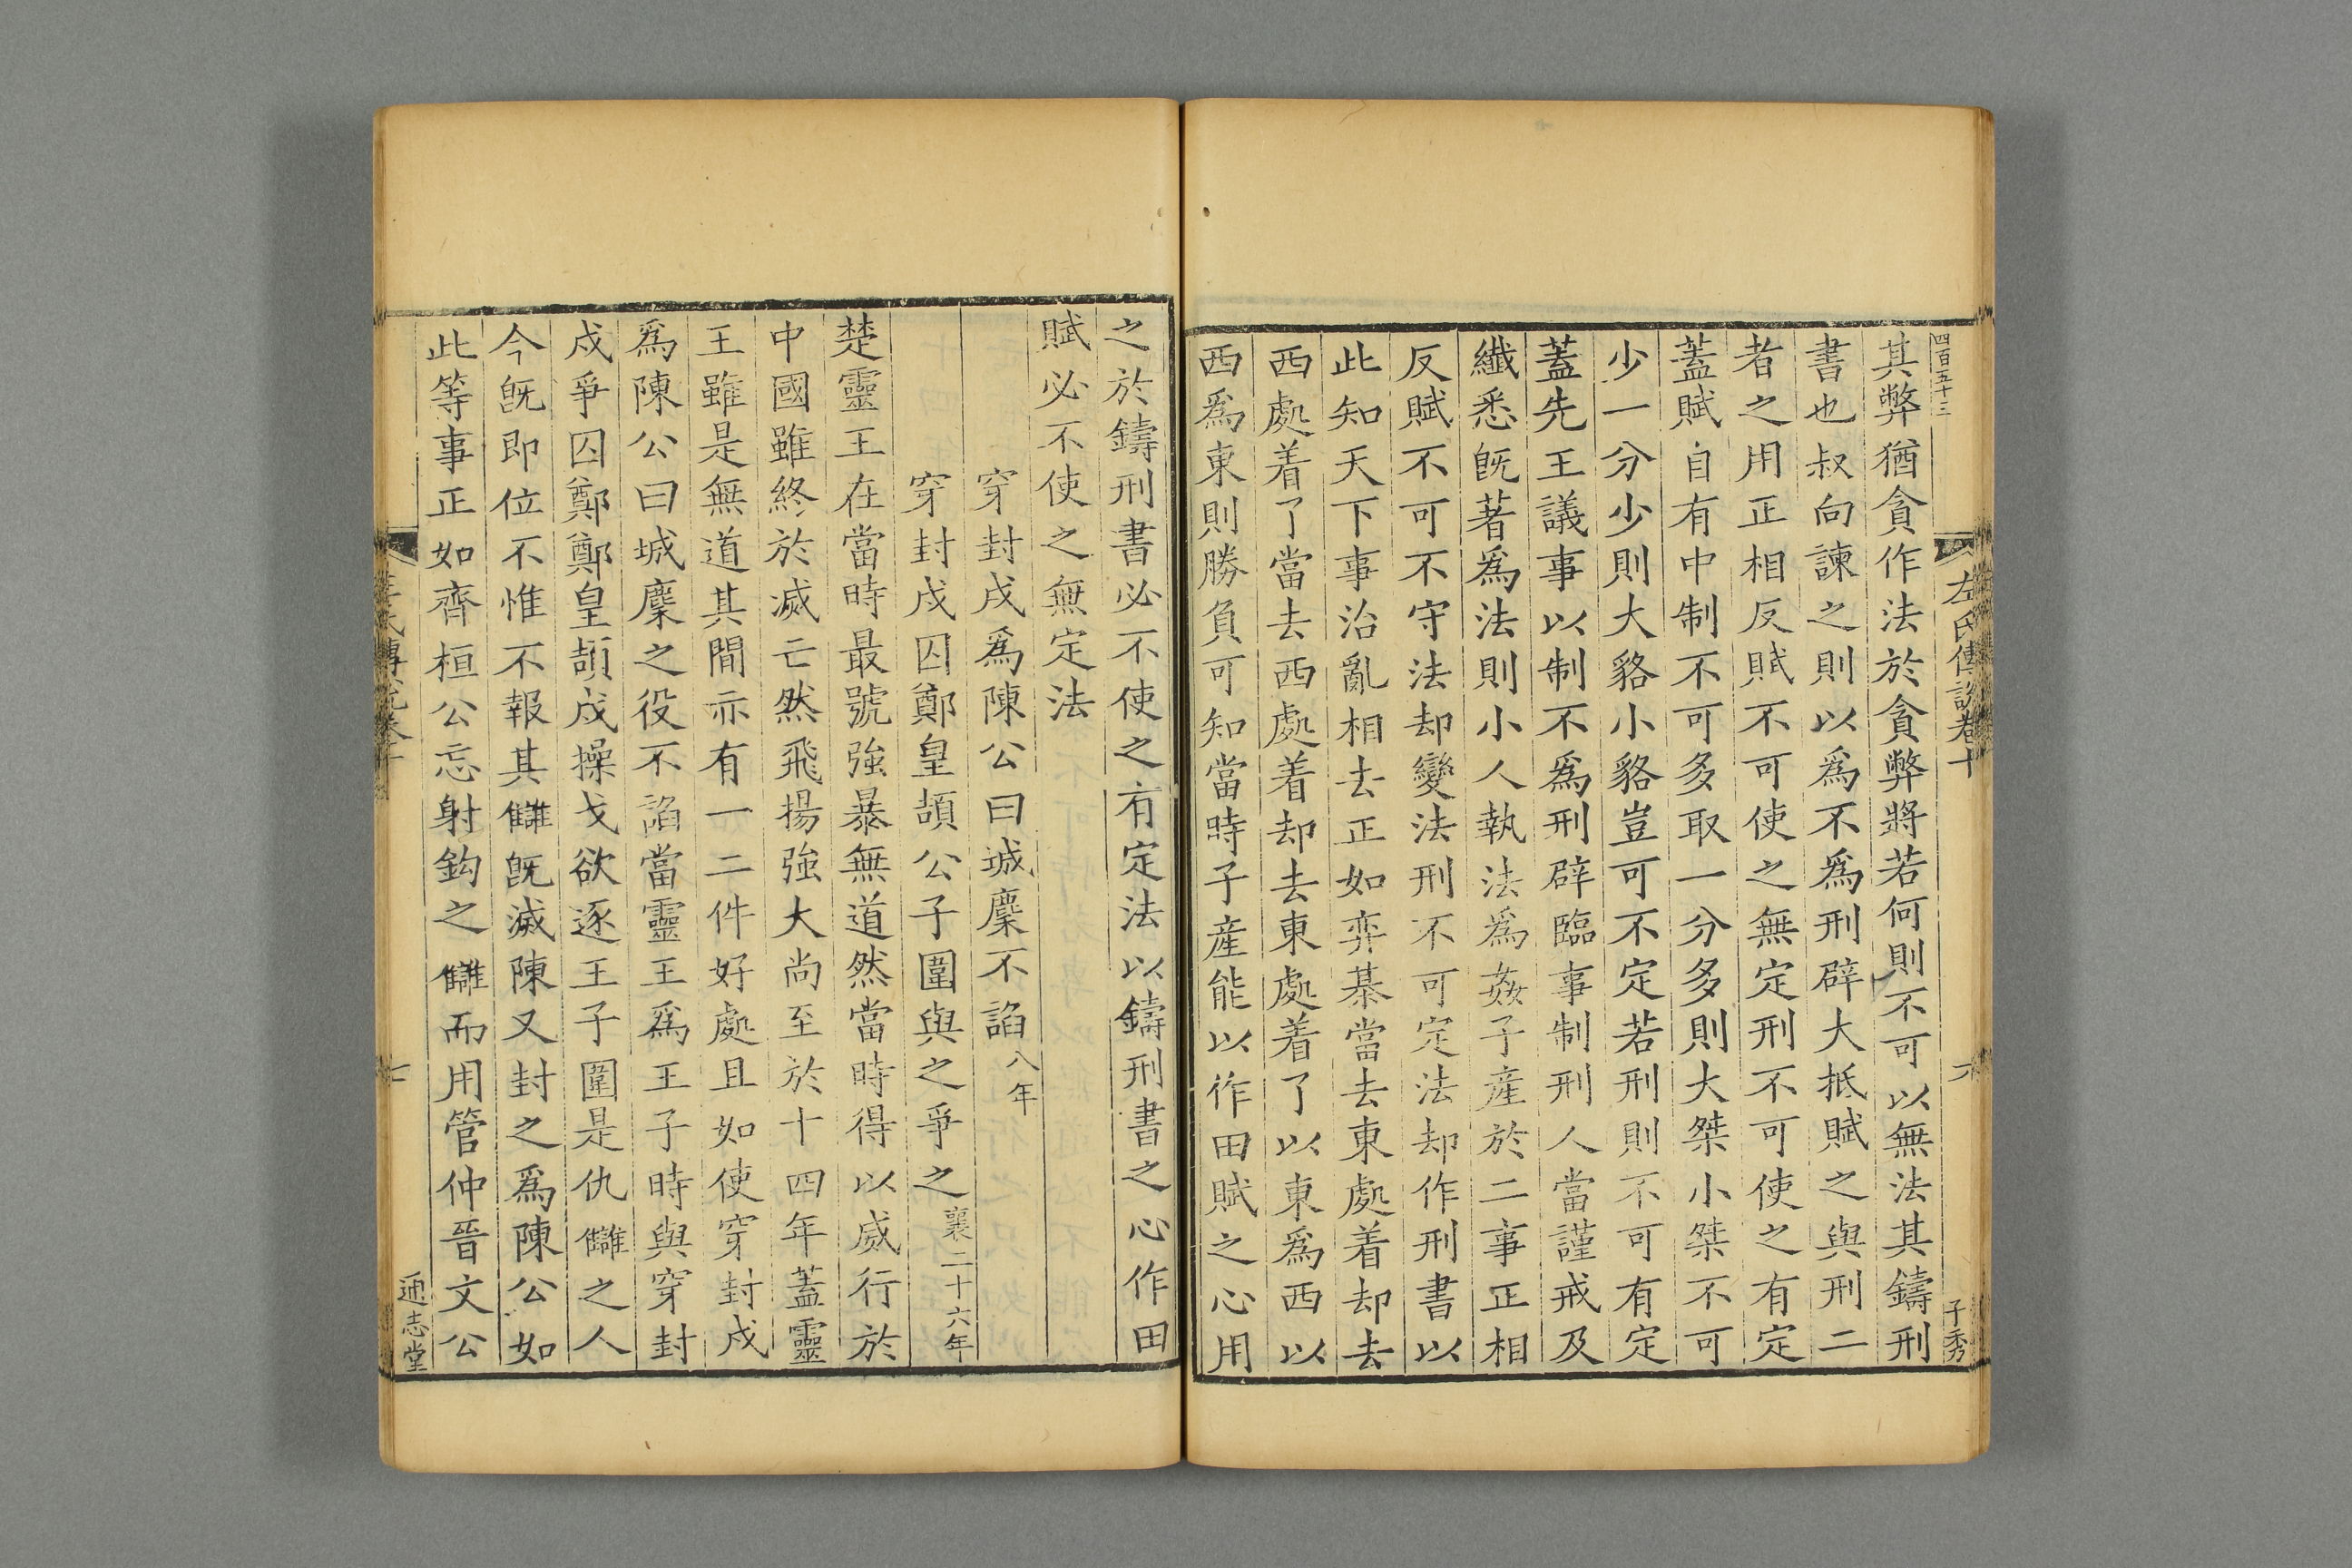 四百五十三
左氏傳說卷十
六
子秀
其弊猶貪作法於貪弊將若何則不可以無法其鑄刑
書也叔向諫之則以為不為刑辟大抵賦之與刑二
者之用正相反賦不可使之無定刑不可使之有定
蓋賦自有中制不可多取一分多則大桀小桀不可
少一分少則大貉小貉豈可不定若刑則不可有定
蓋先王議事以制不為刑辟臨事制刑人當謹戒及
纖悉旣著為法則小人執法為姦子產於二事正相
反賦不可不守法却變法刑不可定法却作刑書以
此知天下事治亂相去正如弈棊當去東處着却去
西處着了當去西處着却去東處着了以東為西以
西為東則勝負可知當時子產能以作田賦之心用
之於鑄刑書必不使之有定法以鑄刑書之心作田
賦必不使之無定法
穿封戌為陳公曰城麇不諂八年
穿封戌囚鄭皇頡公子圍與之爭之襄二十六年
楚靈王在當時最號強暴無道然當時得以威行於
中國雖終於滅亡然飛揚強大尚至於十四年蓋靈
王雖是無道其間亦有一二件好處且如使穿封戌
為陳公曰城麇之役不諂當靈王為王子時與穿封
戌爭囚鄭皇頡戌操戈欲逐王子圍是仇讎之人
今旣即位不惟不報其讎旣滅陳又封之為陳公如
此等事正如齊桓公忘射鈎之讎而用管仲晉文公
左氏傳說卷十
七
通志堂